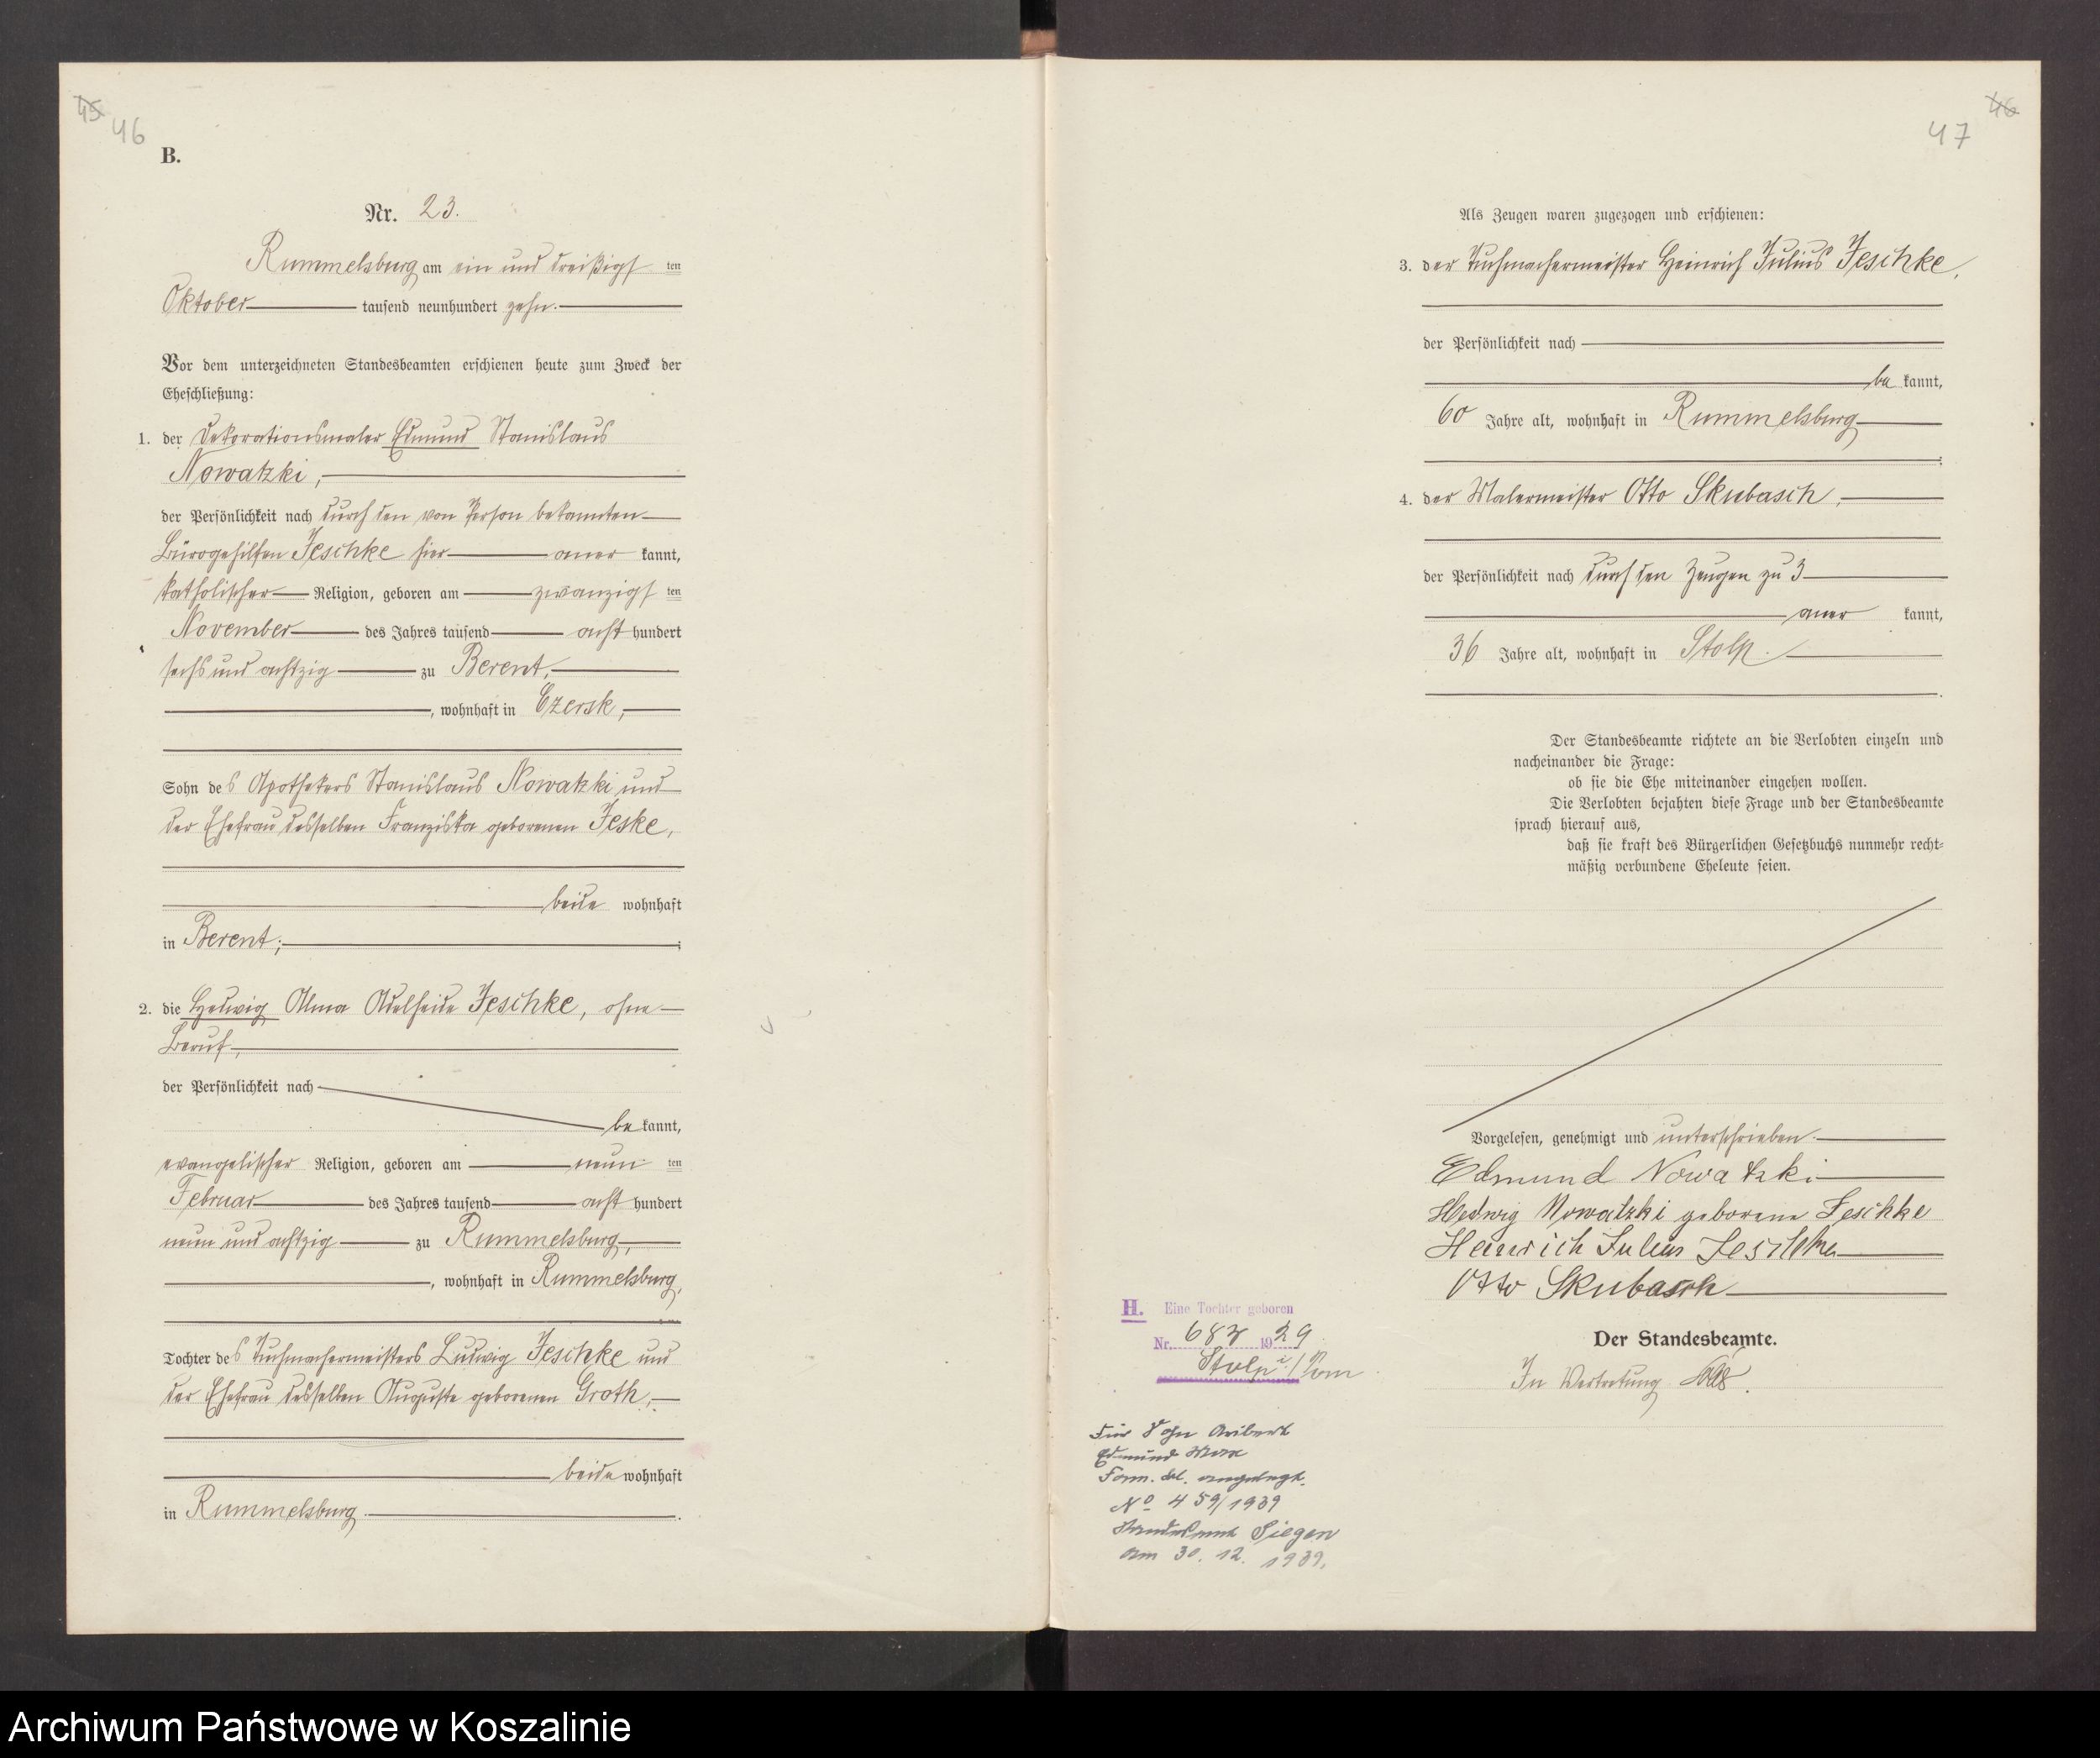 45 46
B.
Nr. 23.
Rummelsburg am ein und dreißigsten
Oktober tausend neunhundert zehn.
Vor dem unterzeichneten Standesbeamten erschienen heute zum Zweck der
Eheschließung:
1. der Dekorationsmaler Edmund Stanislaus
Nowatzki,
der Persönlichkeit nach durch den von Person bekannten
Bürogehilfen Jeschke hier aner kannt,
katholischer Religion, geboren am zwanzigsten
November des Jahres tausend acht hundert
sechs und achtzig zu Berent,
, wohnhaft in Czersk,
Sohn des Apothekers Stanislaus Nowatzki und
der Ehefrau desselben Franziska geborenen Jeske,
beide wohnhaft
in Berent;
2. die Hedwig Alma Adelheide Jeschke, ohne
Beruf,
der Persönlichkeit nach
be kannt,
evangelischer Religion, geboren am neunten
Februar des Jahres tausend acht hundert
neun und achtzig zu Rummelsburg,
, wohnhaft in Rummelsburg,
Tochter des Tuchmachermeisters Ludwig Jeschke und
der Ehefrau desselben Auguste geborenen Groth,
beide wohnhaft
in Rummelsburg.
46
47
Als Zeugen waren zugezogen und erschienen:
3. der Tuchmachermeister Heinrich Julius Jeschke,
der Persönlichkeit nach
be kannt,
60 Jahre alt, wohnhaft in Rummelsburg
;
4. der Malermeister Otto Skubasch,
der Persönlichkeit nach durch den Zeugen zu 3
aner kannt,
36 Jahre alt, wohnhaft in Stolp.
Der Standesbeamte richtete an die Verlobten einzeln und
nacheinander die Frage:
ob sie die Ehe miteinander eingehen wollen.
Die Verlobten bejahten diese Frage und der Standesbeamte
sprach hierauf aus,
daß sie kraft des Bürgerlichen Gesetzbuchs nunmehr recht-
mäßig verbundene Eheleute seien.
Vorgelesen, genehmigt und unterschrieben.
Edmund Nowatzki
Hedwig Nowatzki geborene Jeschke
Heinrich Julius Jeschke
Otto Skubasch
Der Standesbeamte.
In Vertretung
H. Eine Tochter geboren
Nr. 19 29
Stolp i./Pom
Für Sohn
Edmund
Fam. angelegt.
No 459/1939
Standesamt Siegen
am 30. 12. 1939.
Archiwum Państwowe w Koszalinie